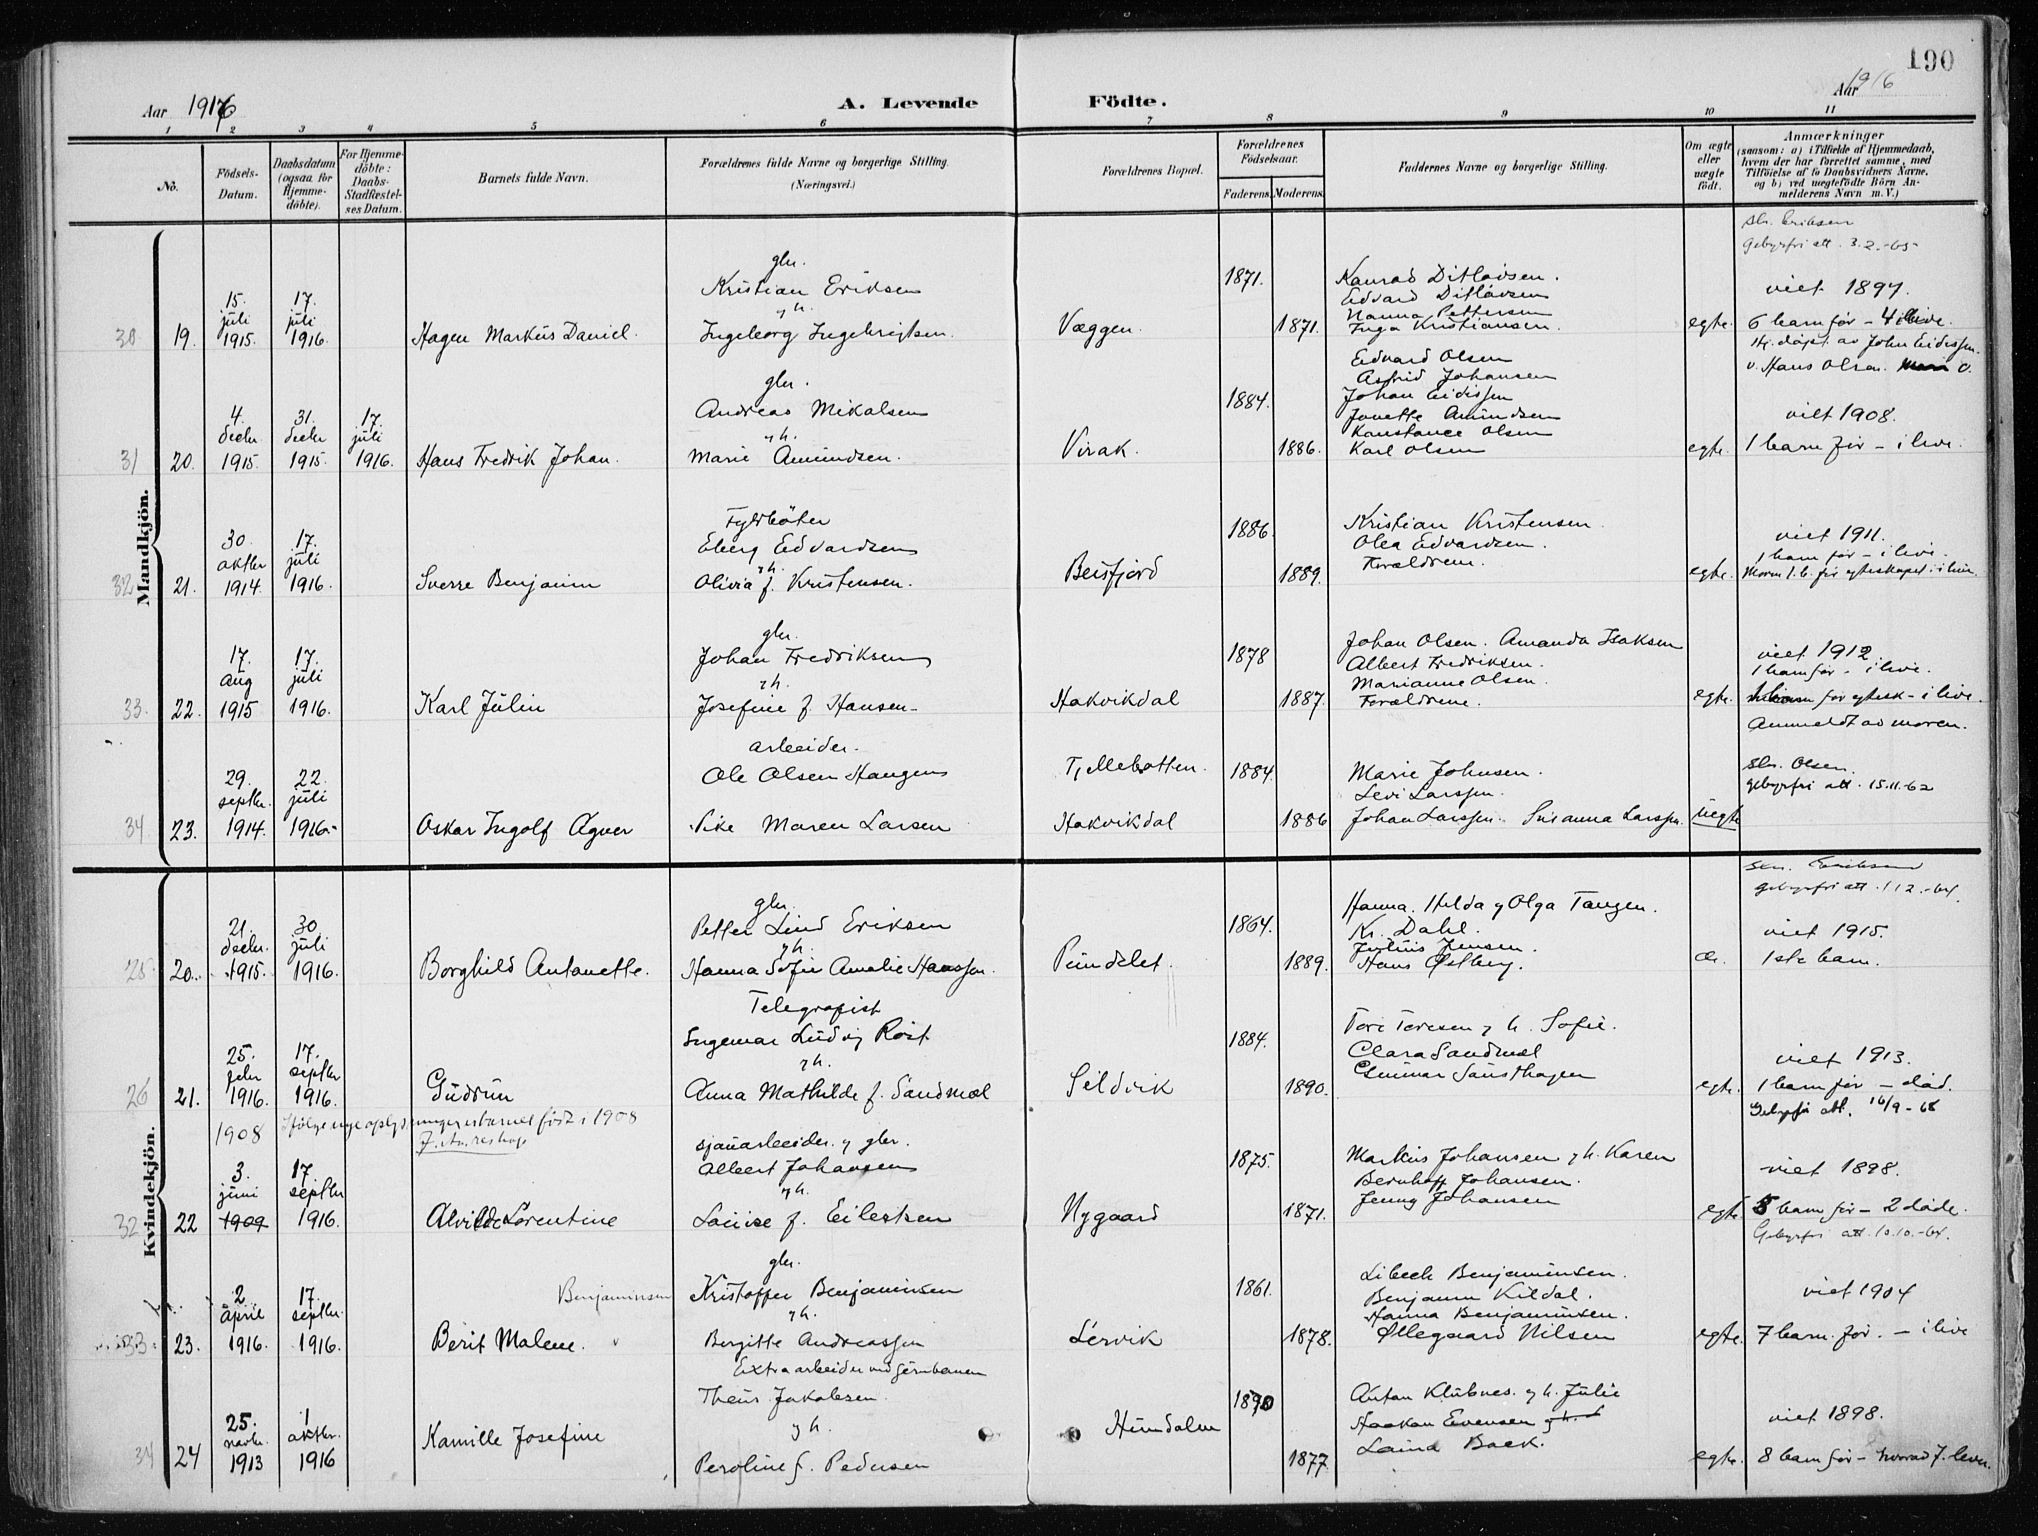 190
Aar 1916
A. Levende Födte.
Aar 1916
1 2 3 4 5 6 7 8 9 10 11
No.
Födsels-Datum.
Daabsdatum (ogsaa for Hjemme-döbte).
For Hjemme-döbte: Daabs-Stadfæstel-ses Datum.
Barnets fulde Navn.
Forældrenes fulde Navne og borgerlige Stilling.
(Næringsvei.)
Forældrenes Bopæl.
Forældrenes Födselsaar.
Faderens. Moderens.
Faddernes Navne og borgerlige Stilling.
Om ægte eller uægte födt.
Anmærkninger
(saasom: a) i Tilfælde af Hjemmedaab,
hvem der har forrettet samme, med
Tilföielse af to Daabsvidners Navne,
og b) ved uægtefödte Börn An-
melderens Navn m. V.)
Mandkjön.
Eriksen
Gebyrfri att. 3.2.-65
glr.
Kristian Eriksen
1871.
Konrad Ditløvsen.
Edvard Ditløvsen
viet 1897.
15. juli 1915
17. juli 1916.
Hanna Pettersen
30 19.
Hagen Markus Daniel.
y h.
Ingeborg Ingebrigtsen.
Væggen.
1871.
Inga Kristiansen.
egte.
6 barn før - 4 ilive.
Hj. døpt av John Eidissen.
v. Hans Olsen.
Edvard Olsen
Astrid Johansen
glr.
Andreas Mikalsen
1884.
Johan Eidissen
Jonette Amundsen
vilt 1908.
4. decbr 1915.
31. decbr 1915.
17. juli 1916.
Konstance Olsen
31 20.
Hans Fredrik Johan.
y h.
Marie Amundsen.
Virak.
1886.
Karl Olsen
egte.
1 barn før - i live.
Fyrbøter
Eberg Edvardsen
1886.
Kristian Kristensen.
Olea Edvardsen.
Forældrene.
viet 1911.
1 barn før - i live.
30. oktbr 1914.
17. juli 1916.
32 21.
Sverre Benjamin
y h.
Olivia f. Kristensen.
Beisfjord
1889.
egte.
glr.
Johan Fredriksen
1878
Johan Olsen. Amanda Isaksen
Albert Fredriksen.
Marianne Olsen.
Forældrene.
viet 1912.
1 barn før - i live.
17. aug 1915
17. juli 1916.
33. 22.
Karl Julin
y h.
Josefine f. Hansen-
Hakvikdal
1887.
egte.
før egtesk - i live.
Anmeldt av moren.
arbeider.
Ole Olsen Haugen
Tjellebotten.
1884.
Marie Johnsen.
Levi Larssen.
Olsen.
gebyrfri att. 15.11.-62
29. septbr. 1914.
22. juli 1916.-
34 23.
Oskar Ingolf Agner
Pike Maren Larsen
Hakvikdal
1886
Johan Larssen. Susanna Larssen.
uegte
Kvindekjön.
Eriksen
gebyrfri att. 1 12.-64.
glr.
Petter Lind Eriksen
1864.
Hanna. Hilda y Olga Tangen.
Kr. Dahl.
Julius Jensen.
Hans Østberg.
viet 1915.
21. decbr. 1915.
30. juli 1916.
25 20.
Borghild Antonette.
y h.
Hanna Sofie Amalie Hanssen.
Pundslet.
1889.
æ.
1ste barn.
Telegrafist
Ingemar Ludvig Røst
1884.
Tore Toresen y h. Sofie.
Clara Sandmæl
Gunnar Sausthagen
viet 1913.
25. febr 1916.
17. septbr 1916.
26 21.
Gudrun
y h.
Anna Mathilde f. Sandmæl
Sildvik
1890.
egte.
1 barn før - død.
Gebyrfri att. 16/9-68
1908 Ifølge nye oplysninger er barnet født i 1908
sjauarbeider. y glr.
Albert Johansen
1875.
Markus Johansen y h. Karen
Bernhoff Johansen.
Jenny Johansen
viet 1898.
3. juni 1909
17. septbr 1916.
32 22
Alvilde Lorentine
y h.
Louise f. Eilertsen
Nygaard
1871.
egte.
5 barn før - 2 døde.
Gebyrfri att. 10.10.-64.
glr.
Benjaminsen
Kristoffer Benjaminsen
1861.
Libech Benjaminsen.
Benjamin Kildal.
Hanna Benjaminsen.
viet 1904
2 april 1916.
17. septbr. 1916.
33. 23.
Berit Malene.
y h.
Bergitte Andreassen
Lervik
1878.
Øllegaard Nilsen
egte.
7 barn. før. - i live
Extraarbeider ved jernbanen
Theus Jakobsen.
1870
Anton Klubnes. y h. Julie
Haakon Evensen y h.
Laura Boek.
viet 1898.
25. novbr. 1913
1 oktbr. 1916
34 24
Kamille Josefine
y h.
Peroline f. Pedersen
Hundalen
1877
egte.
8 barn før - hvorav 7. lever.